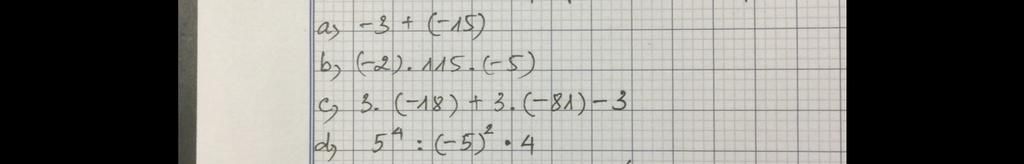 a, -3 + (-15)
b, (-2) . 115 . (-5)
c, 3. (-18) + 3. (-81) - 3
d, 5⁴ : (-5)² . 4